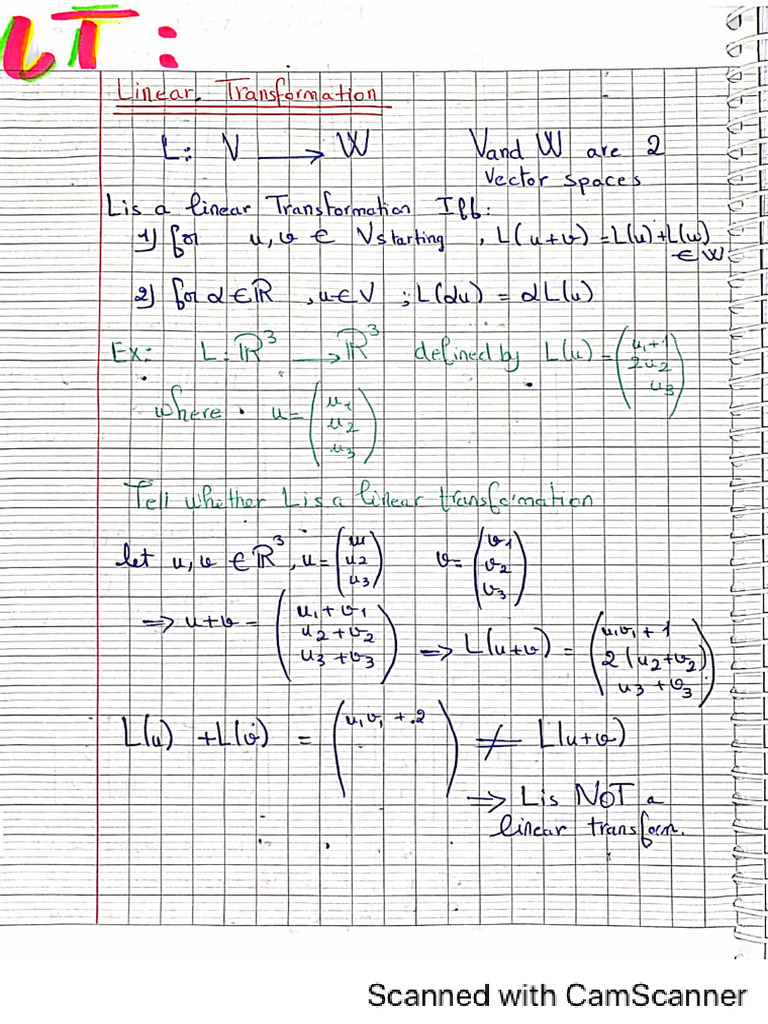 LT:
Linear Transformation
L: V → W V and W are 2
vector spaces
L is a linear Transformation Iff:
1) for u, v ∈ V starting , L(u+v) = L(u)+L(v)
∈ W
2) for α ∈ ℝ , u ∈ V ; L(αu) = αL(u)
Ex: L: ℝ³ → ℝ³ defined by L(u) = (u₁+1
2u₂
u₃)
where u = (u₁
u₂
u₃)
Tell whether L is a linear transformation
let u, v ∈ ℝ³, u = (u₁ v = (v₁
u₂ v₂
u₃) v₃)
⇒ u+v = (u₁+v₁
u₂+v₂
u₃+v₃) ⇒ L(u+v) = (u₁v₁+1
2(u₂+v₂)
u₃+v₃)
L(u) + L(v) = (u₁v₁+2 ) ≠ L(u+v)
⇒ L is NOT a
linear transform.
Scanned with CamScanner